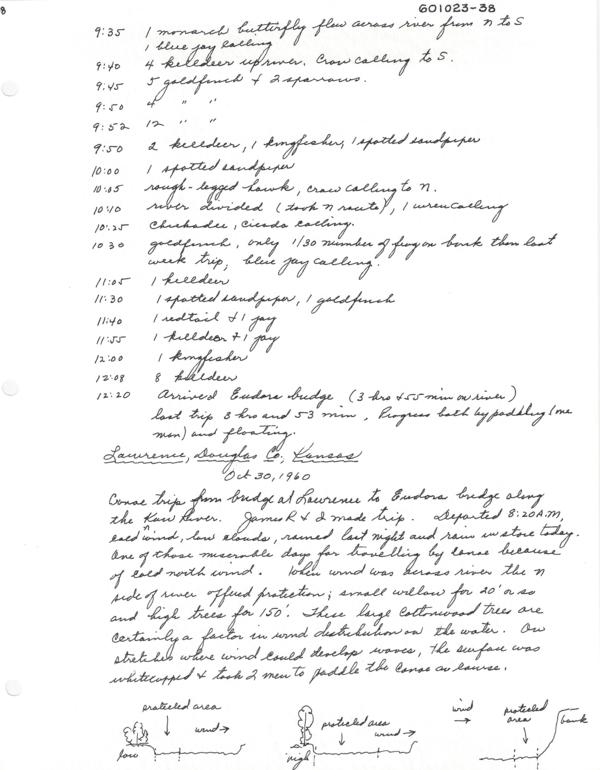 8
601023-38
9:35 1 monarch butterfly flew across river from N to S
1 blue jay calling
9:40 4 killdeer upriver. Crow calling to S.
9:45 5 goldfinch & 2 sparrows.
9:50 4 " "
9:52 12 " "
9:50 2 killdeer, 1 kingfisher, 1 spotted sandpiper
10:00 1 spotted sandpiper
10:05 rough-legged hawk, crow calling to N.
10:10 river divided (took N route), 1 wren calling
10:25 Chickadee, cicada calling.
10 30 goldfinch, only 1/30 number of frog on bank than last
week trip, blue jay calling.
11:05 1 killdeer
11:30 1 spotted sandpiper, 1 goldfinch
11:40 1 redtail & 1 jay
11:55 1 killdeer & 1 jay
12:00 1 kingfisher
12:08 8 killdeer
12:20 Arrived Eudora bridge (3 hrs & 55 min on river)
last trip 3 hrs and 53 min, Progress both by paddling (one
man) and floating.
Lawrence, Douglas Co, Kansas
Oct 30, 1960
Canoe trip from bridge at Lawrence to Eudora bridge along
the Kaw River. James R & I made trip. Departed 8:20 A.M,
cold wind, low clouds, rained last night and rain in store today.
One of those miserable days for travelling by canoe because
of cold north wind. When wind was across river the N
side of river offered protection; small willow for 20' or so
and high trees for 150'. These large cottonwood trees are
certainly a factor in wind distribution on the water. On
stretches where wind could develop waves, the surface was
whitecapped & took 2 men to paddle the canoe on course.
protected area
wind →
low
protected area
wind →
high
wind
→
protected
area
bank